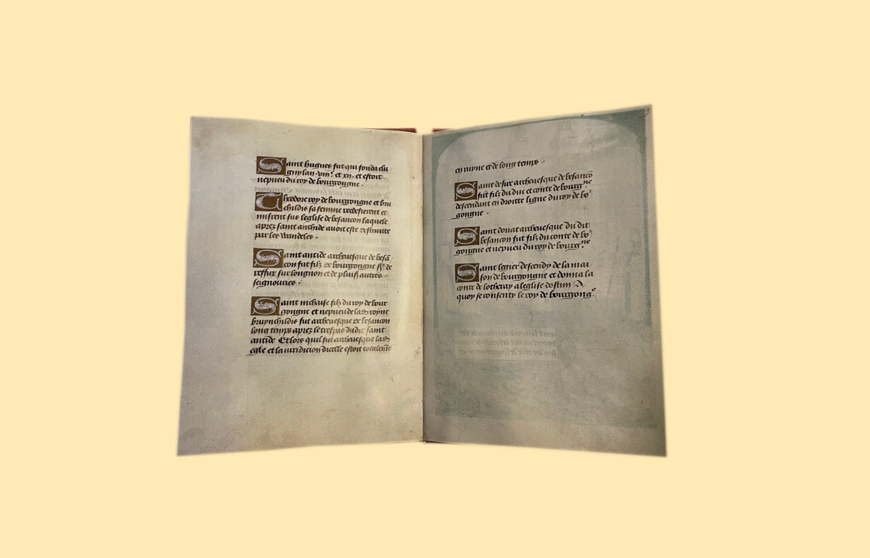 Saint hugues fut qui fonda clu
gny lan viiij. et xij. et estoit
nepueu du roy de bourgongne .
Theodore roy de bourgongne et bru
childis sa femme redefierent et
misrent sus leglise de besancon laquele
aprez saint anthide auoit este destruitte
par les Wandeles .
Saint antide archeuesque de besã
con fut filz de bourgongne sr de
ruffey sur longnon et de plusrs autres
seignouries .
Saint nicaise filz du roy de bour
gongne et nepueu de la royne
brunchildis fut archeuesque de besancon
long temps aprez le trespas dudit saint
antide Et lors quil fut archeuesque
egle et la iuridicion dicelle estoit
en ruyne et de long temps .
Saint desire archeuesque de besanco
fut filz du duc et conte de bourgne
descendant en droitte ligne du roy de bo
gongne .
Saint donat archeuesque du dit
besancon fut filz du conte de bo
gongne et nepueu du roy de bourgne
Saint legier descendy de la mai
son de bourgongne et donna la
conte de a leglise dostun A
quoy se consenty le roy de bourgongne